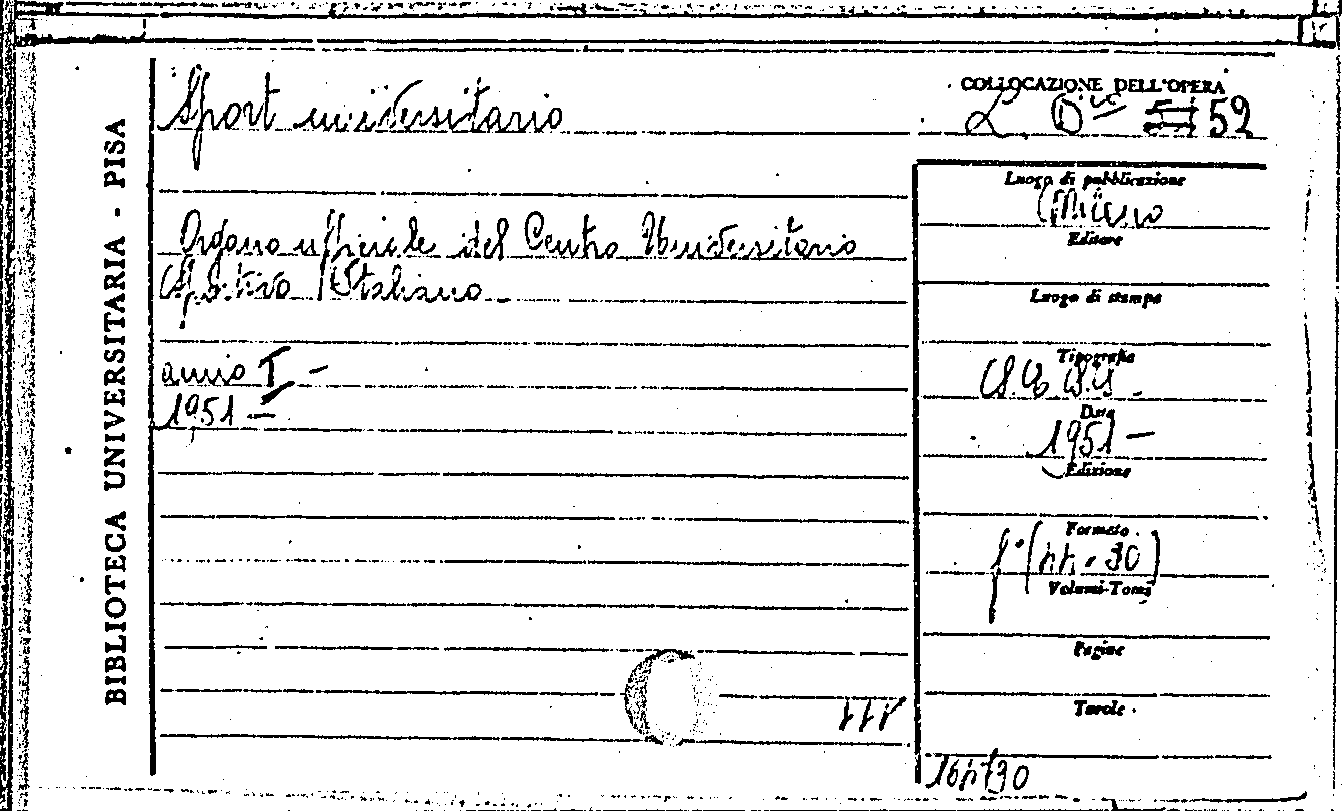 BIBLIOTECA UNIVERSITARIA - PISA
Sport universitario
COLLOCAZIONE DELL'OPERA
52
Luogo di pubblicazione
Milano
Editore
Organo ufficiale del Centro Universitario
Sportivo Italiano.
Luogo di stampa
Tipografia
anno I -
Data
1951 -
1951 -
Edizione
Formato
f° (
30)
Volumi-Tomi
Pagine
Tavole